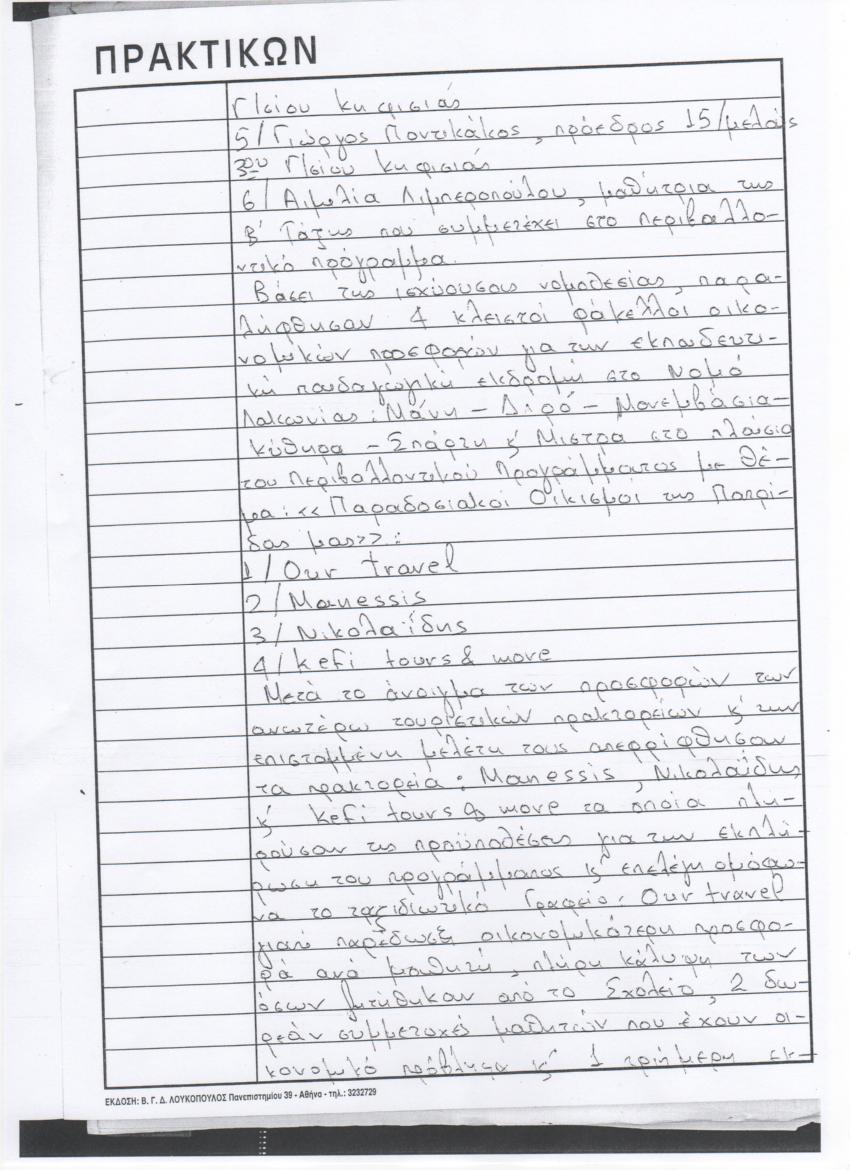 ΠΡΑΚΤΙΚΩΝ
Γ/σίου Κηφισιάς
5/ Γιώργος Ποντικάκος, πρόεδρος 15/μελούς
3ου Γ/σίου Κηφισιάς
6/ Αιμιλία Λιμπεροπούλου, μαθήτρια της
Β' Τάξης που συμμετέχει στο περιβαλλο-
ντικό πρόγραμμα.
Βάσει της ισχύουσας νομοθεσίας, παρα-
λήφθησαν 4 κλειστοί φάκελλοι οικο-
νομικών προσφορών για την εκπαιδευτι-
κή παιδαγωγική εκδρομή στο Νομό
Λακωνίας: Μάνη - Διρό - Μονεμβάσια-
Κύθηρα - Σπάρτη κ' Μιστρά στο πλαίσιο
του Περιβαλλοντικού Προγράμματος με θέ-
μα: << Παραδοσιακοί Οικισμοί της Πατρί-
δας μας>>:
1/ Our travel
2/ Manessis
3/ Νικολαΐδης
4/ Kefi tours & more
Μετά το άνοιγμα των προσφορών των
ανωτέρω τουριστικών πρακτορείων κ' την
επισταμμένη μελέτη τους απερρίφθησαν
τα πρακτορεία: Manessis, Νικολαΐδης
κ' Kefi tours & more τα οποία πλη-
ρούσαν τις προϋποθέσεις για την εκπλή-
ρωση του προγράμματος κ' επελέγη ομόφω-
να το ταξιδιωτικό Γραφείο: Our travel
γιατί παρέδωσε οικονομικότερη προσφο-
ρά ανά μαθητή, πλήρη κάλυψη των
όσων ζητήθηκαν από το Σχολείο, 2 δω-
ρεάν συμμετοχές μαθητών που έχουν οι-
κονομικό πρόβλημα κ' 1 τριήμερη εκ-
ΕΚΔΟΣΗ: Β. Γ. Δ. ΛΟΥΚΟΠΟΥΛΟΣ Πανεπιστημίου 39 - Αθήνα - τηλ.: 3232729